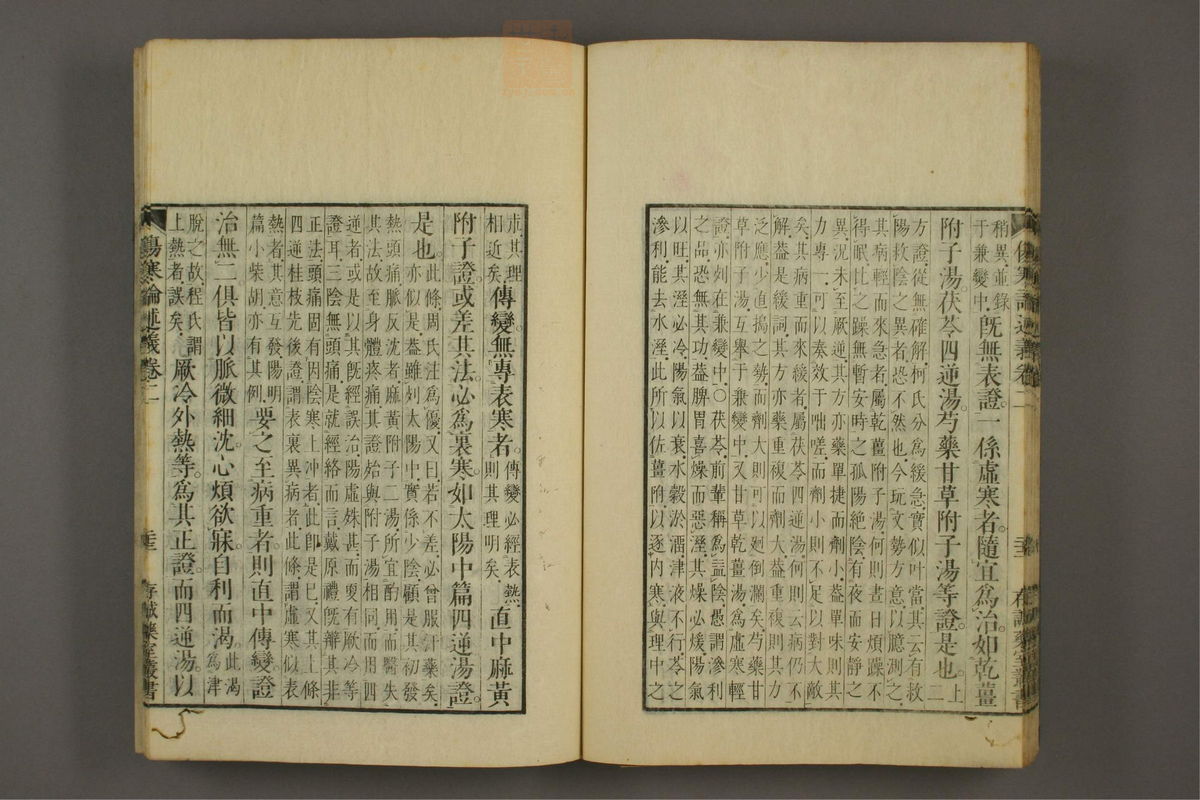 傷寒論述義卷二
存誠藥室叢書
稍異並錄
于兼變中既無表證一係虛寒者隨宜為治如乾薑
附子湯茯苓四逆湯芍藥甘草附子湯等證是也上二
方證從無確解柯氏分為緩急實似叶當其云有救
陽救陰之異者恐不然也今玩文勢方意以臆測之
其病輕而來急者屬乾薑附子湯何則晝日煩躁不
得眠比之躁無暫安時之孤陽絕陰有夜而安靜之
異沉未至厥逆其方亦藥單捷而劑小葢單味則其
力專一可以奏效于咄嗟而劑小則不足以對大敵
矣其病重而來緩者屬茯苓四逆湯何則云病仍不
解葢是緩詞其方亦藥重複而劑大葢重複則其力
泛應少直搗之勢而劑大則可以廻倒瀾矣芍藥甘
草附子湯互舉于兼變中又甘草乾薑湯為虛寒輕
證亦列在兼變中○茯苓前輩稱為益陰愚謂滲利
之品恐無其功葢脾胃喜燥而惡溼其燥必煖陽氣
以旺其溼必冷陽氣以衰水穀淤溜津液不行苓之
滲利能去水溼此所以佐薑附以逐內寒與理中之
朮其理
相近矣傳變無專表寒者傳變必經表熱則其理明矣直中麻黃
附子證或差其法必為裏寒如太陽中篇四逆湯證
是也此條周氏注為優又曰若不差必曾服汗藥矣
亦似是葢雖列太陽中實係少陰顧是其初發
熱頭痛脈反沈者麻黃附子二湯所宜酌用而醫失
其法故至身體疼痛其證始與附子湯相同而用四
逆者或是以其既經誤治陽虛殊甚而更有厥冷等
證耳三陰無頭痛是就經絡而言戴原禮既辯其非
正法頭痛固有因陰寒上冲者此即是已又其上條
四逆桂枝先後證謂表裏異病者此條謂虛寒似表
熱者其意互發陽明
篇小柴胡亦有其例要之至病重者則直中傳變證
治無二俱皆以脈微細沈心煩欲寐自利而渴此渴為津
脫之故程氏謂
上熱者誤矣厥冷外熱等為其正證而四逆湯以
傷寒論述義卷二
存誠藥室叢書